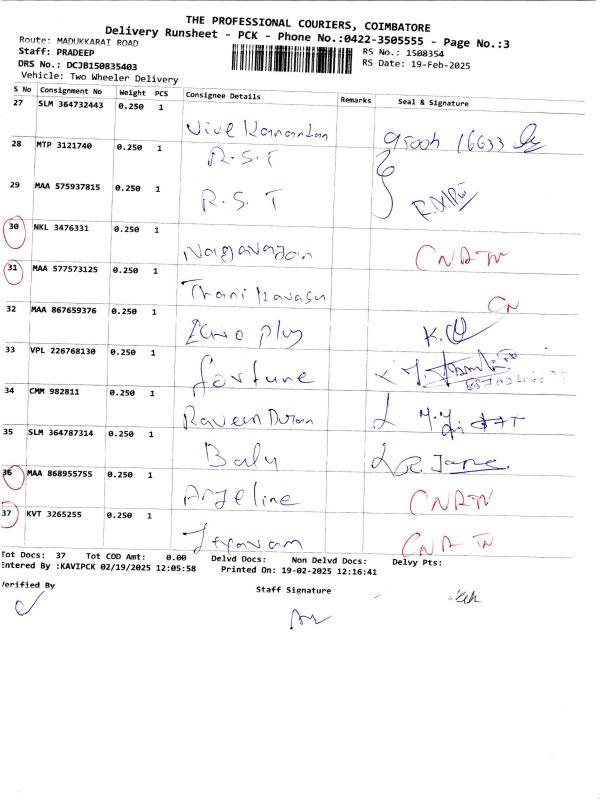 THE PROFESSIONAL COURIERS, COIMBATORE
Delivery Runsheet - PCK - Phone No.:0422-3505555 - Page No.:3
Route: MADUKKARAI ROAD
RS No.: 1508354
Staff: PRADEEP
RS Date: 19-Feb-2025
DRS No.: DCJB150835403
Vehicle: Two Wheeler Delivery
S No Consignment No Weight PCS Consignee Details Remarks Seal & Signature
27 SLM 364732443 0.250 1 Vivekanandan
28 MTP 3121740 0.250 1 R.S.T
29 MAA 575937815 0.250 1 R.S.T
30 NKL 3476331 0.250 1 Nagarajan
31 MAA 577573125 0.250 1 CN
32 MAA 867659376 0.250 1
33 VPL 226768130 0.250 1 fortune
34 CMM 982811 0.250 1
35 SLM 364787314 0.250 1 Balu
36 MAA 868955755 0.250 1 Angeline
37 KVT 3265255 0.250 1 Jeyaram
Tot Docs: 37 Tot COD Amt: 0.00 Delvd Docs: Non Delvd Docs: Delvy Pts:
Entered By :KAVIPCK 02/19/2025 12:05:58 Printed On: 19-02-2025 12:16:41
Verified By
Staff Signature